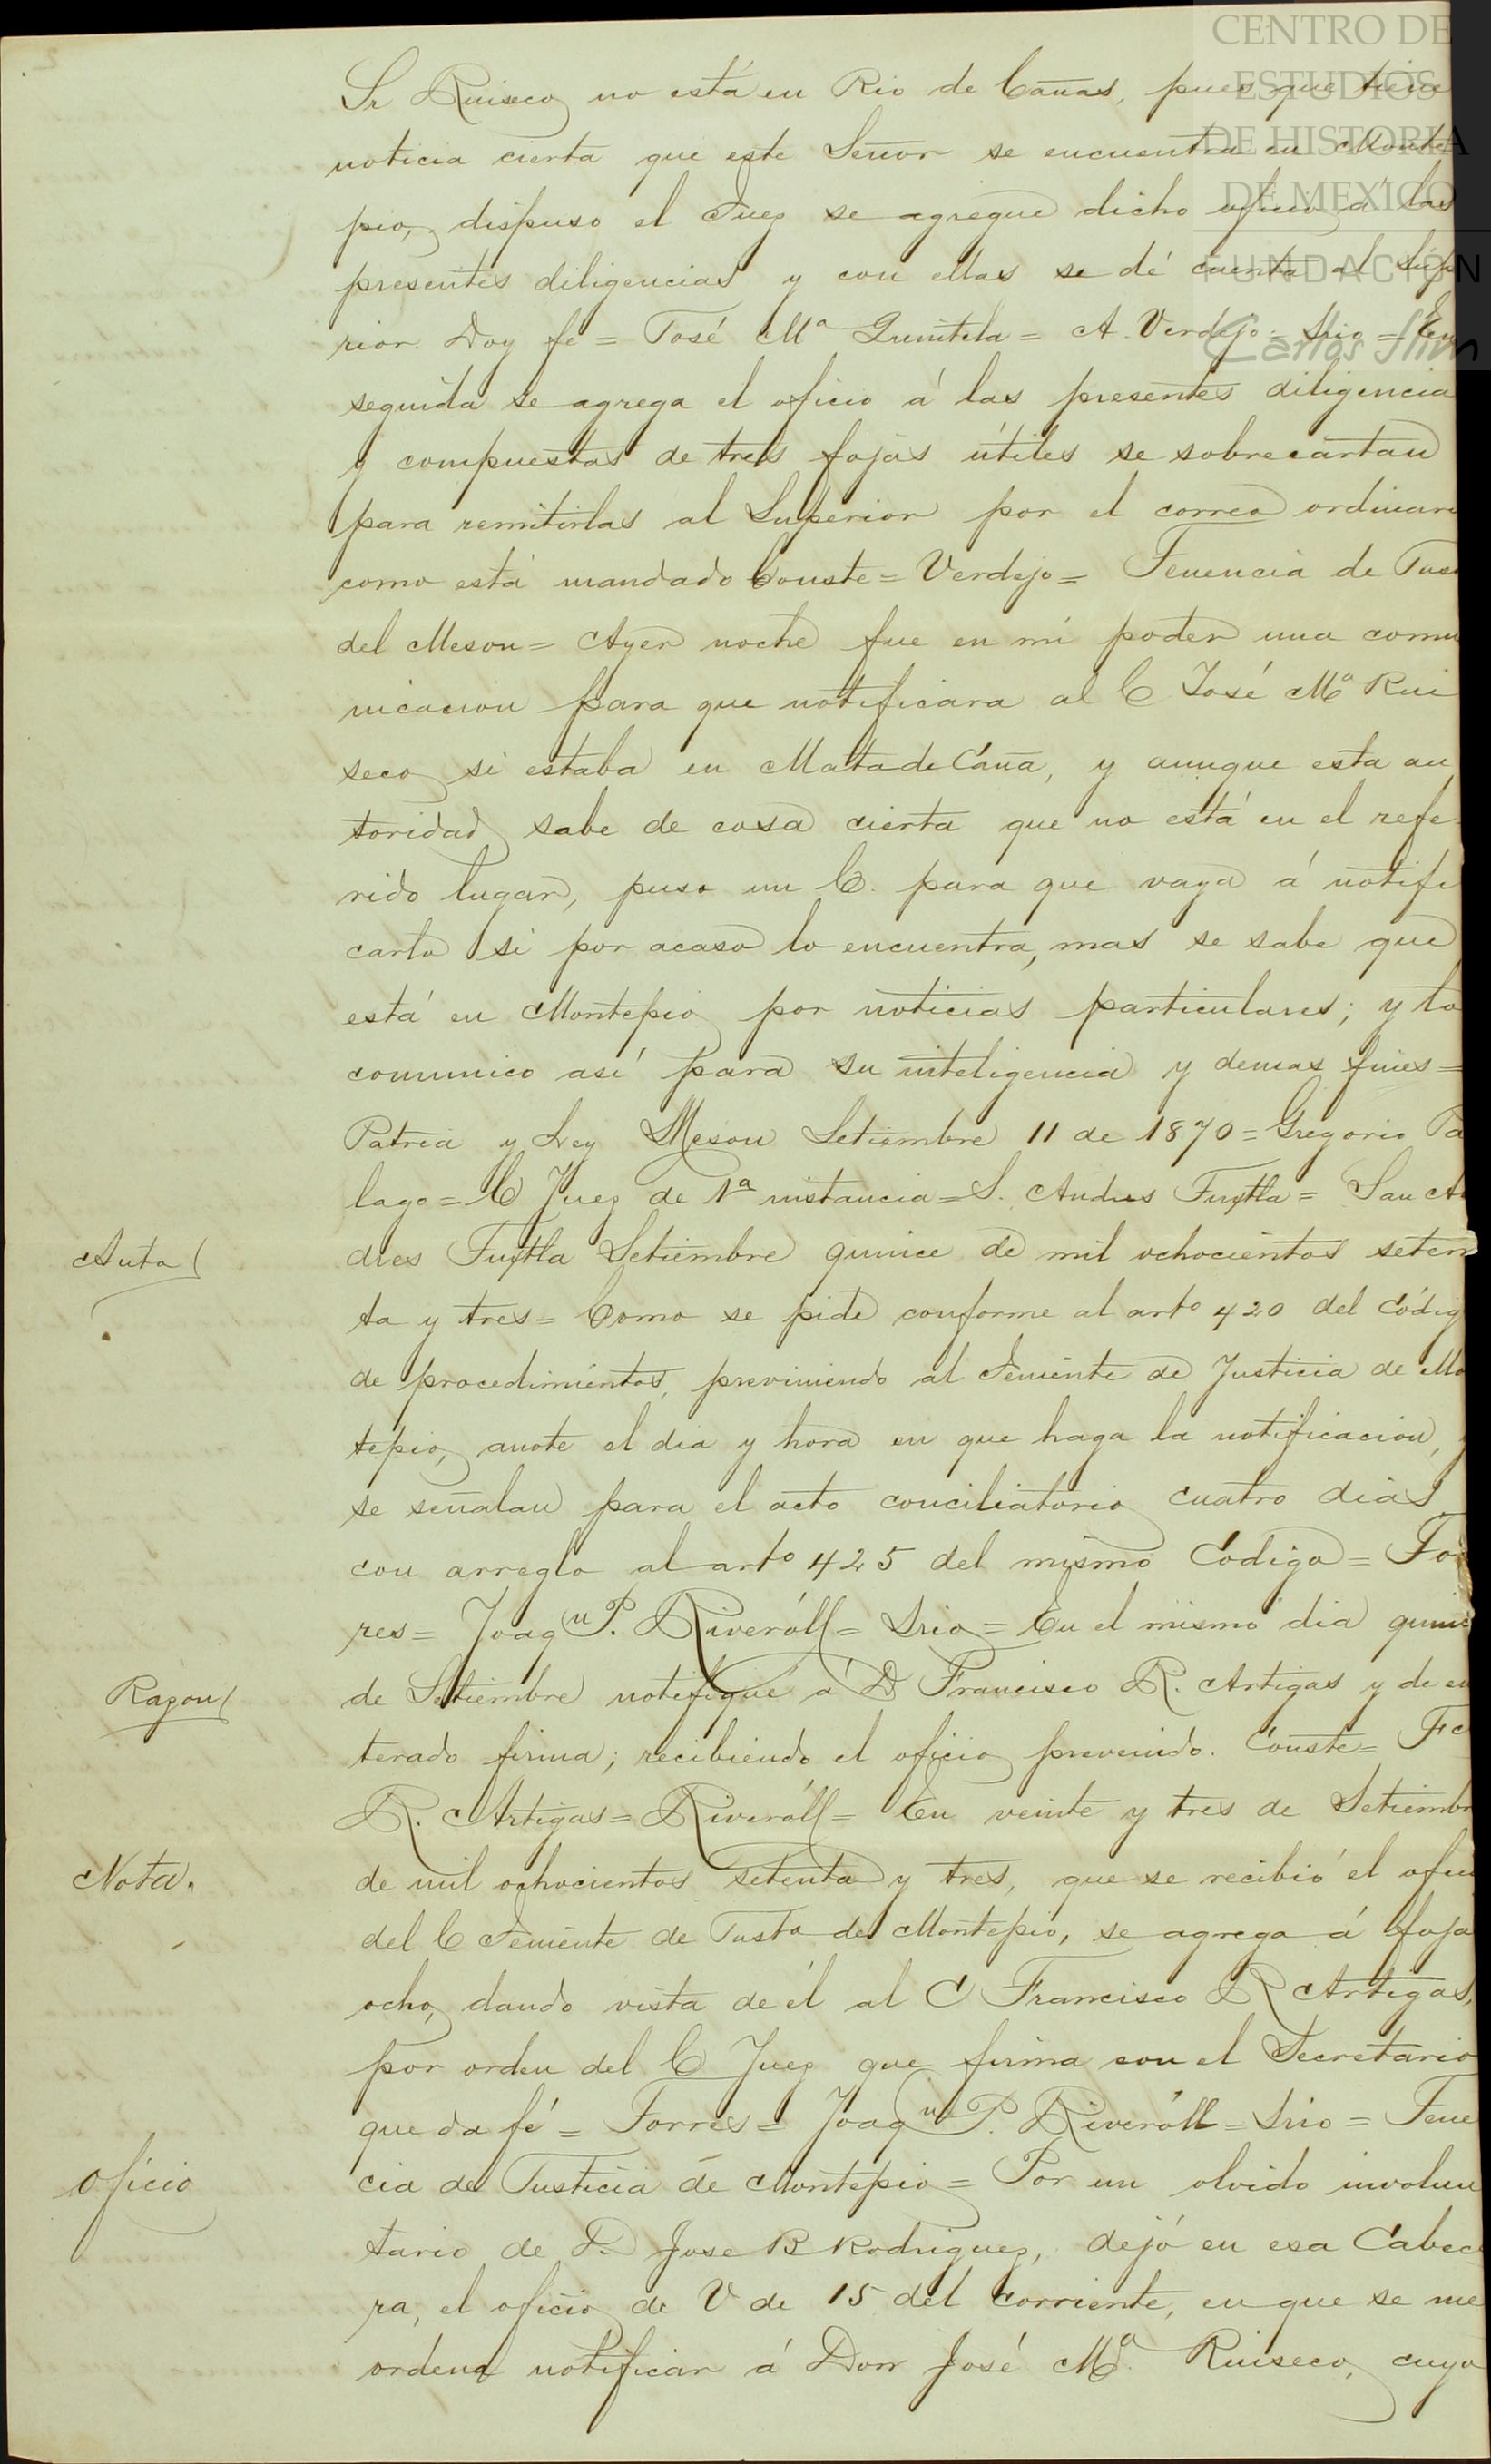 CENTRO DE
ESTUDIOS
DE HISTORIA
DE MEXICO
FUNDACIÓN
Carlos Slim
Sr Ruiseco no está en Rio de Cañas, pues que tiene
noticia cierta que este Señor se encuentra en Monte
pio, dispuso el Juez se agregue dicho oficio á las
presentes diligencias y con ellas se dé cuenta al Supe
rior. Doy fe = José Mª Quintela = A. Verdejo = Srio = En
seguida se agrega el oficio á las presentes diligencia
y compuestas de tres fojas útiles se sobrecartan
para remitirlas al Superior por el correo ordinari
como está mandado Conste = Verdejo = Tenencia de Just
del Meson = Ayer noche fue en mi poder una comu
nicacion para que notificara al C José Mª Rui
seco si estaba en Mata de Caña, y aunque esta au
toridad sabe de cosa cierta que no está en el refe
rido lugar, puso un C. para que vaya á notifi
carlo si por acaso lo encuentra, mas se sabe que
está en Montepio por noticias particulares; y lo
comunico así para su inteligencia y demas fines =
Patria y Ley Meson Setiembre 11 de 1870 = Gregorio Pa
lago = C Juez de 1ª instancia = S. Andres Tuxtla = San An
Auto
dres Tuxtla Setiembre quince de mil ochocientos seten
ta y tres = Como se pide conforme al arto 420 del Códig
de procedimientos, previniendo al Teniente de Justicia de Mo
tepio, anote el dia y hora en que haga la notificacion, y
se señalan para el acto conciliatorio cuatro dias
con arreglo al arto 425 del mismo Codigo = Tor
res = Joaqn P. Riveróll = Srio = En el mismo dia quinc
Razon
de Setiembre notifiqué á D Francisco R. Artigas y de en
terado firma; recibiendo el oficio prevenido. Conste = Fco
R. Artigas = Riveróll = En veinte y tres de Setiembr
Nota.
de mil ochocientos setenta y tres, que se recibió el ofici
del C Teniente de Justa de Montepio, se agrega á foja
ocho, dando vista de él al C Francisco R Artigas,
por orden del C Juez que firma con el Secretario
que da fé = Torres = Joaqn P. Riveróll = Srio = Tene
Oficio
cia de Justicia de Montepio = Por un olvido involun
tario de D. Jose B Rodriguez, dejó en esa Cabec
ra, el oficio de V de 15 del corriente, en que se me
ordena notificar á Don José Mª. Ruiseco, cuyo